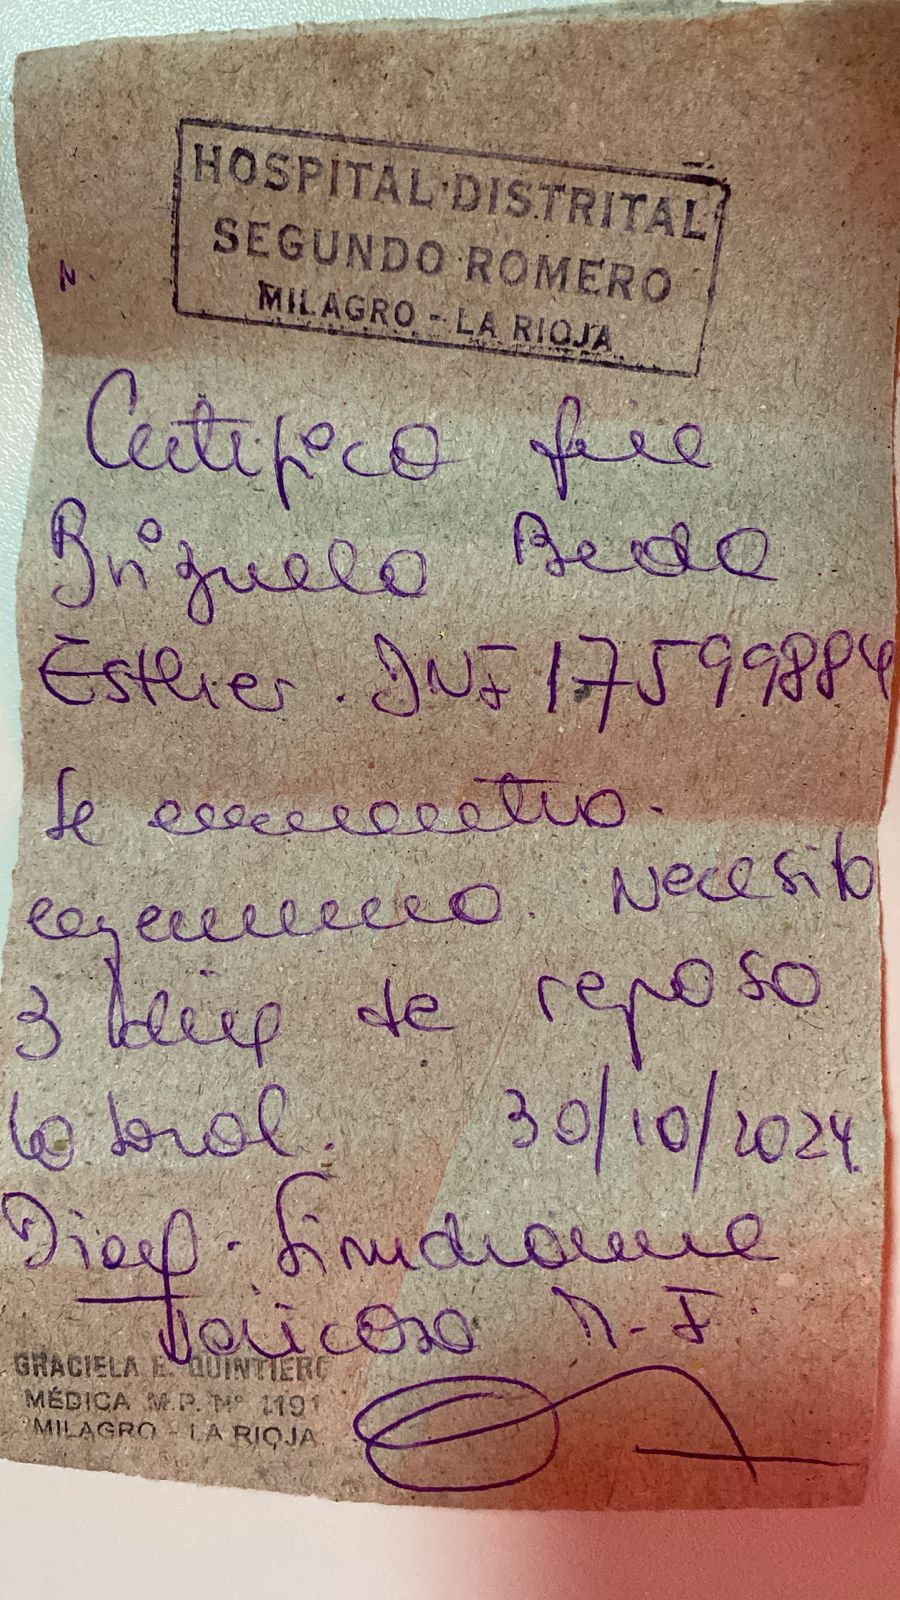 HOSPITAL DISTRITAL
SEGUNDO ROMERO
MILAGRO - LA RIOJA
N.
Certifico que
Brizuela
Esther. DNI 17599884
se encuentra
Necesita
3 días de reposo
laboral. 30/10/2024
Diag - Síndrome
Varicoso M-I
GRACIELA E. QUINTIERO
MÉDICA M.P. Nº 1191
MILAGRO - LA RIOJA